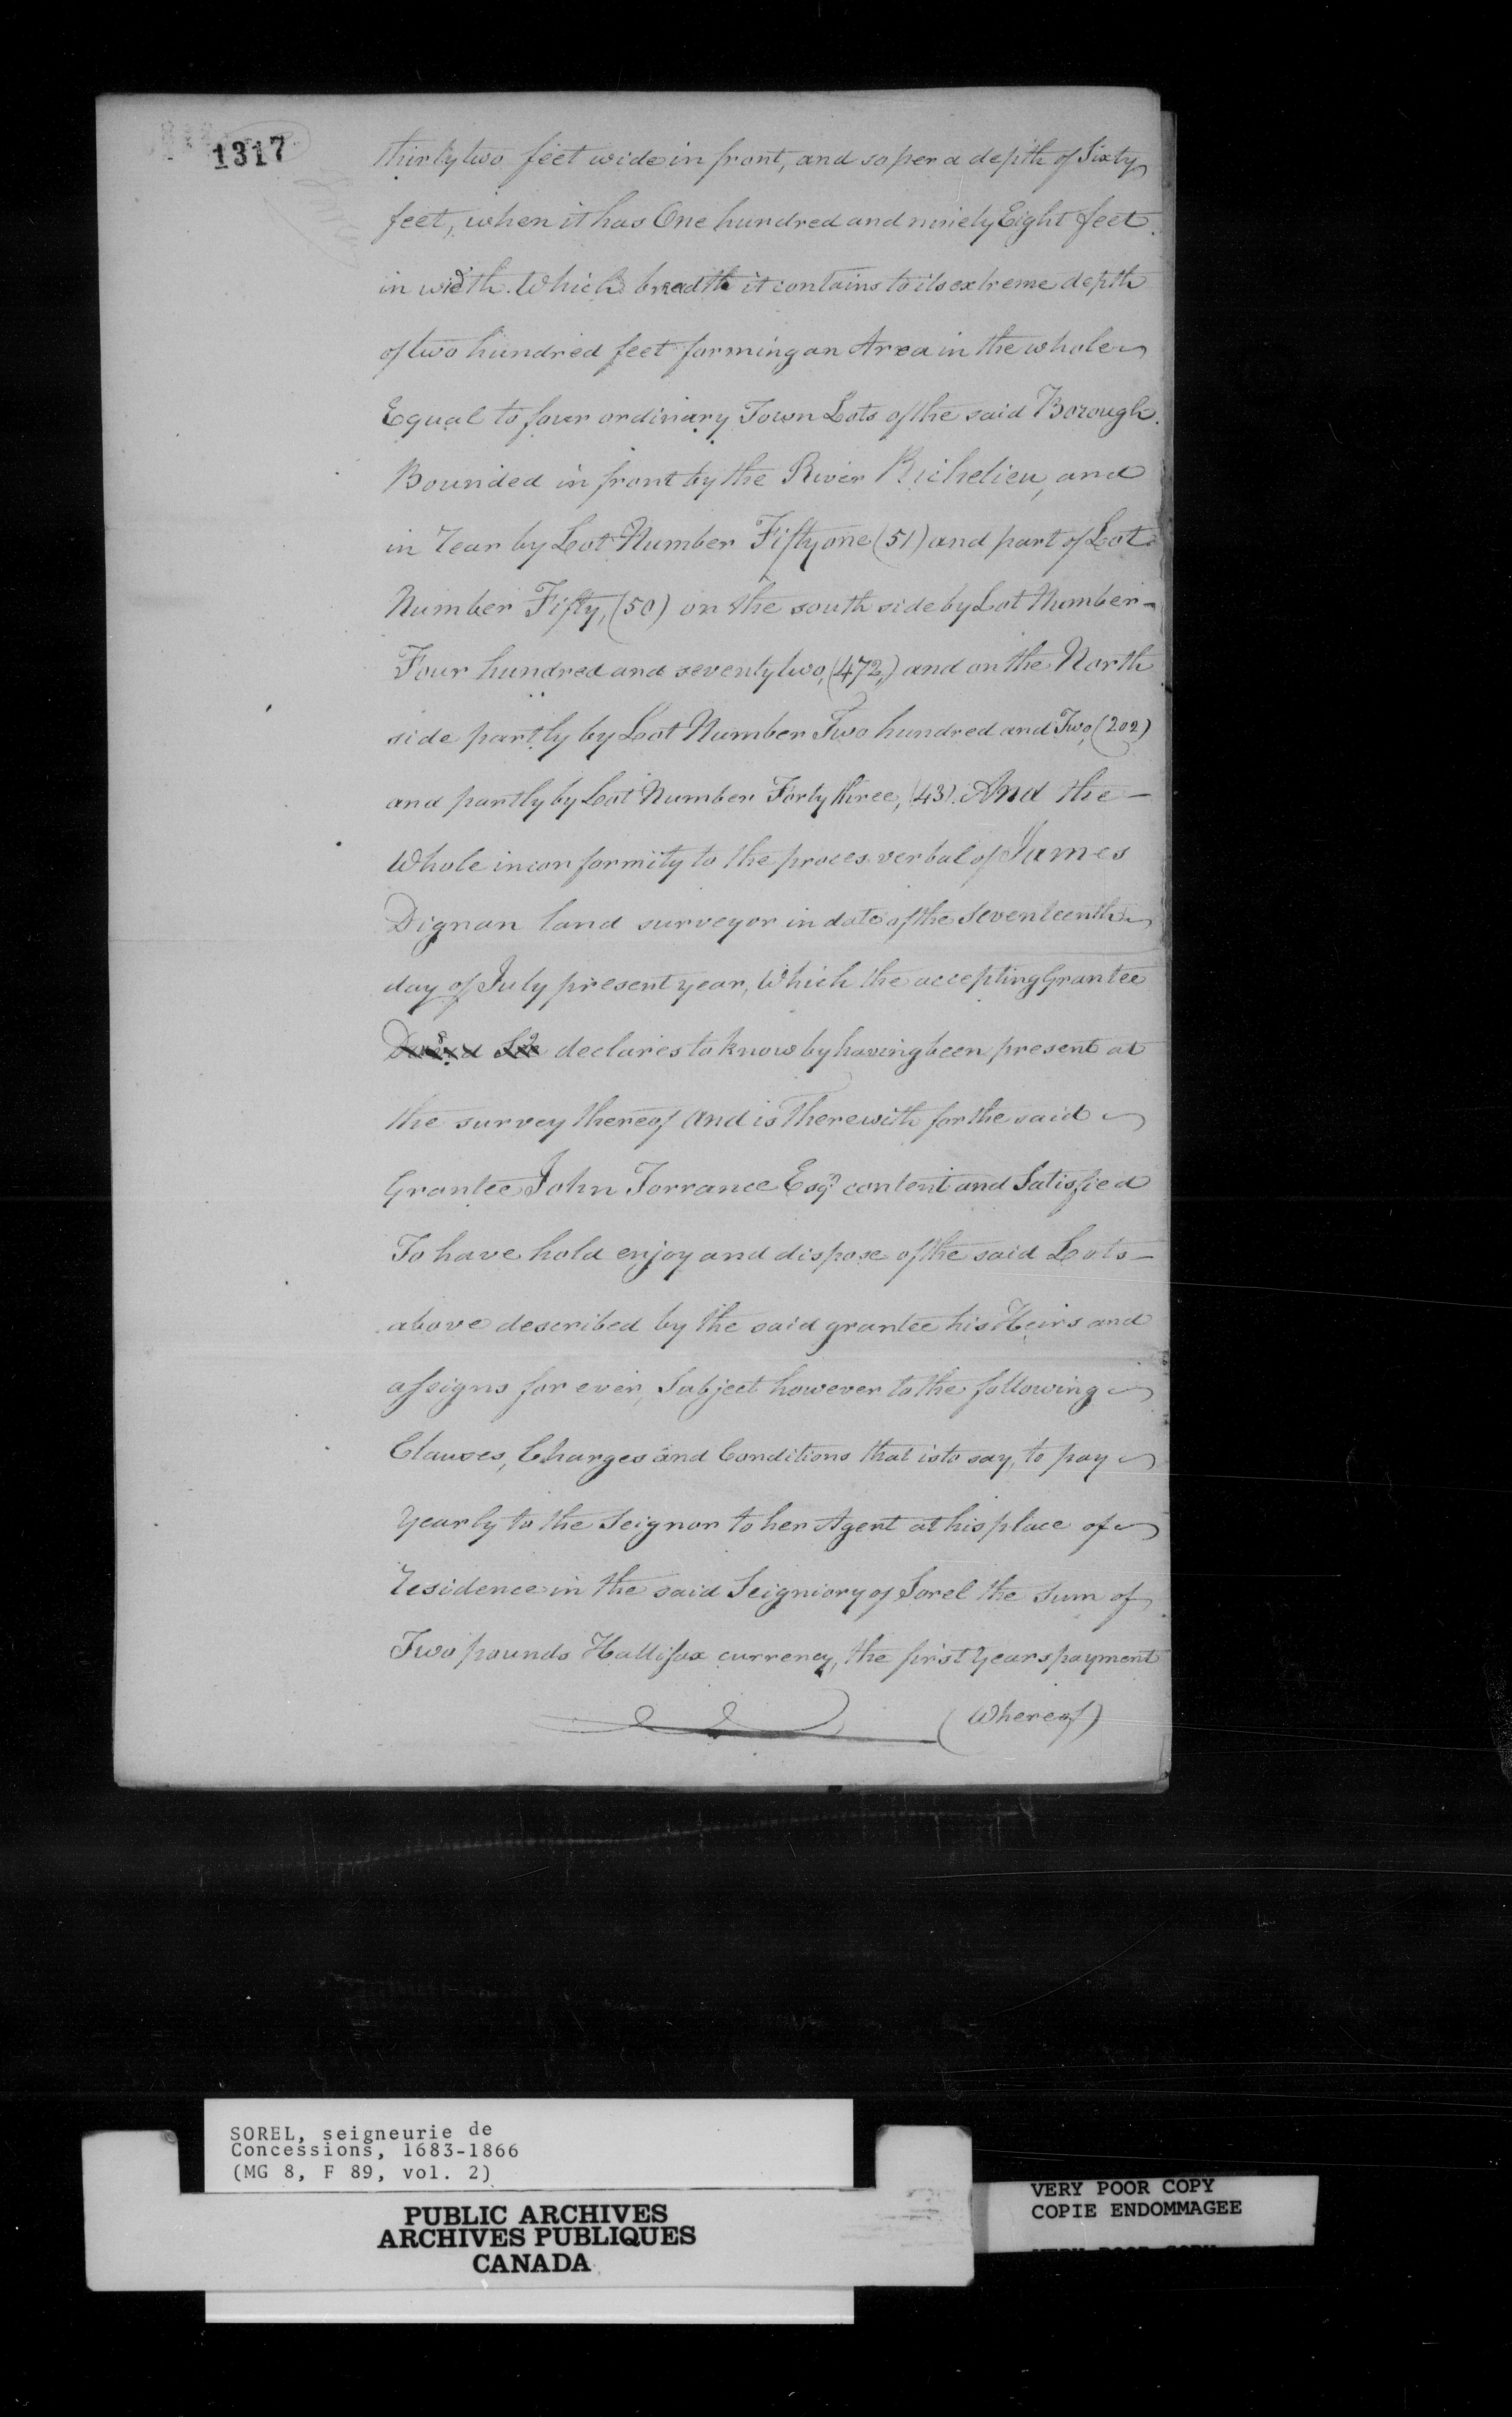 1317
thirty two feet wide in front, and so per a depth of Sixty
feet, when it has One hundred and ninety Eight feet.
in width. Which breadth it contains to its extreme depth
of two hundred feet forming an Area in the whole
Equal to four ordinary Town Lots of the said Borough.
Bounded in front by the River Richelieu, and
in rear by Lot Number Fifty one (51) and part of Lot
Number Fifty, (50) on the south side by Lot Number -
Four hundred and seventy two, (472,) and on the North
side partly by Lot Number Two hundred and Two, (202)
and partly by Lot Number Forty three, (43). And the -
Whole in conformity to the proces verbal of James
Dignan land surveyor in date of the Seventeenth
day of July present year, Which the accepting Grantee
declares to know by having been present at
the survey thereof and is Therewith for the said
Grantee John Torrance Esqr content and Satisfied
To have hold enjoy and dispose of the said Lots -
above described by the said grantee his Heirs and
assigns for ever, Subject however to the following
Clauses, Charges and Conditions that is to say, to pay
yearly to the Seignor to her Agent at his place of
residence in the said Seigniory of Sorel the Sum of
Two pounds Hallifax currency, the first Years payment
(Whereof)
SOREL, seigneurie de
Concessions, 1683-1866
(MG 8, F 89, vol. 2)
PUBLIC ARCHIVES
ARCHIVES PUBLIQUES
CANADA
VERY POOR COPY
COPIE ENDOMMAGEE
VERY POOR COPY